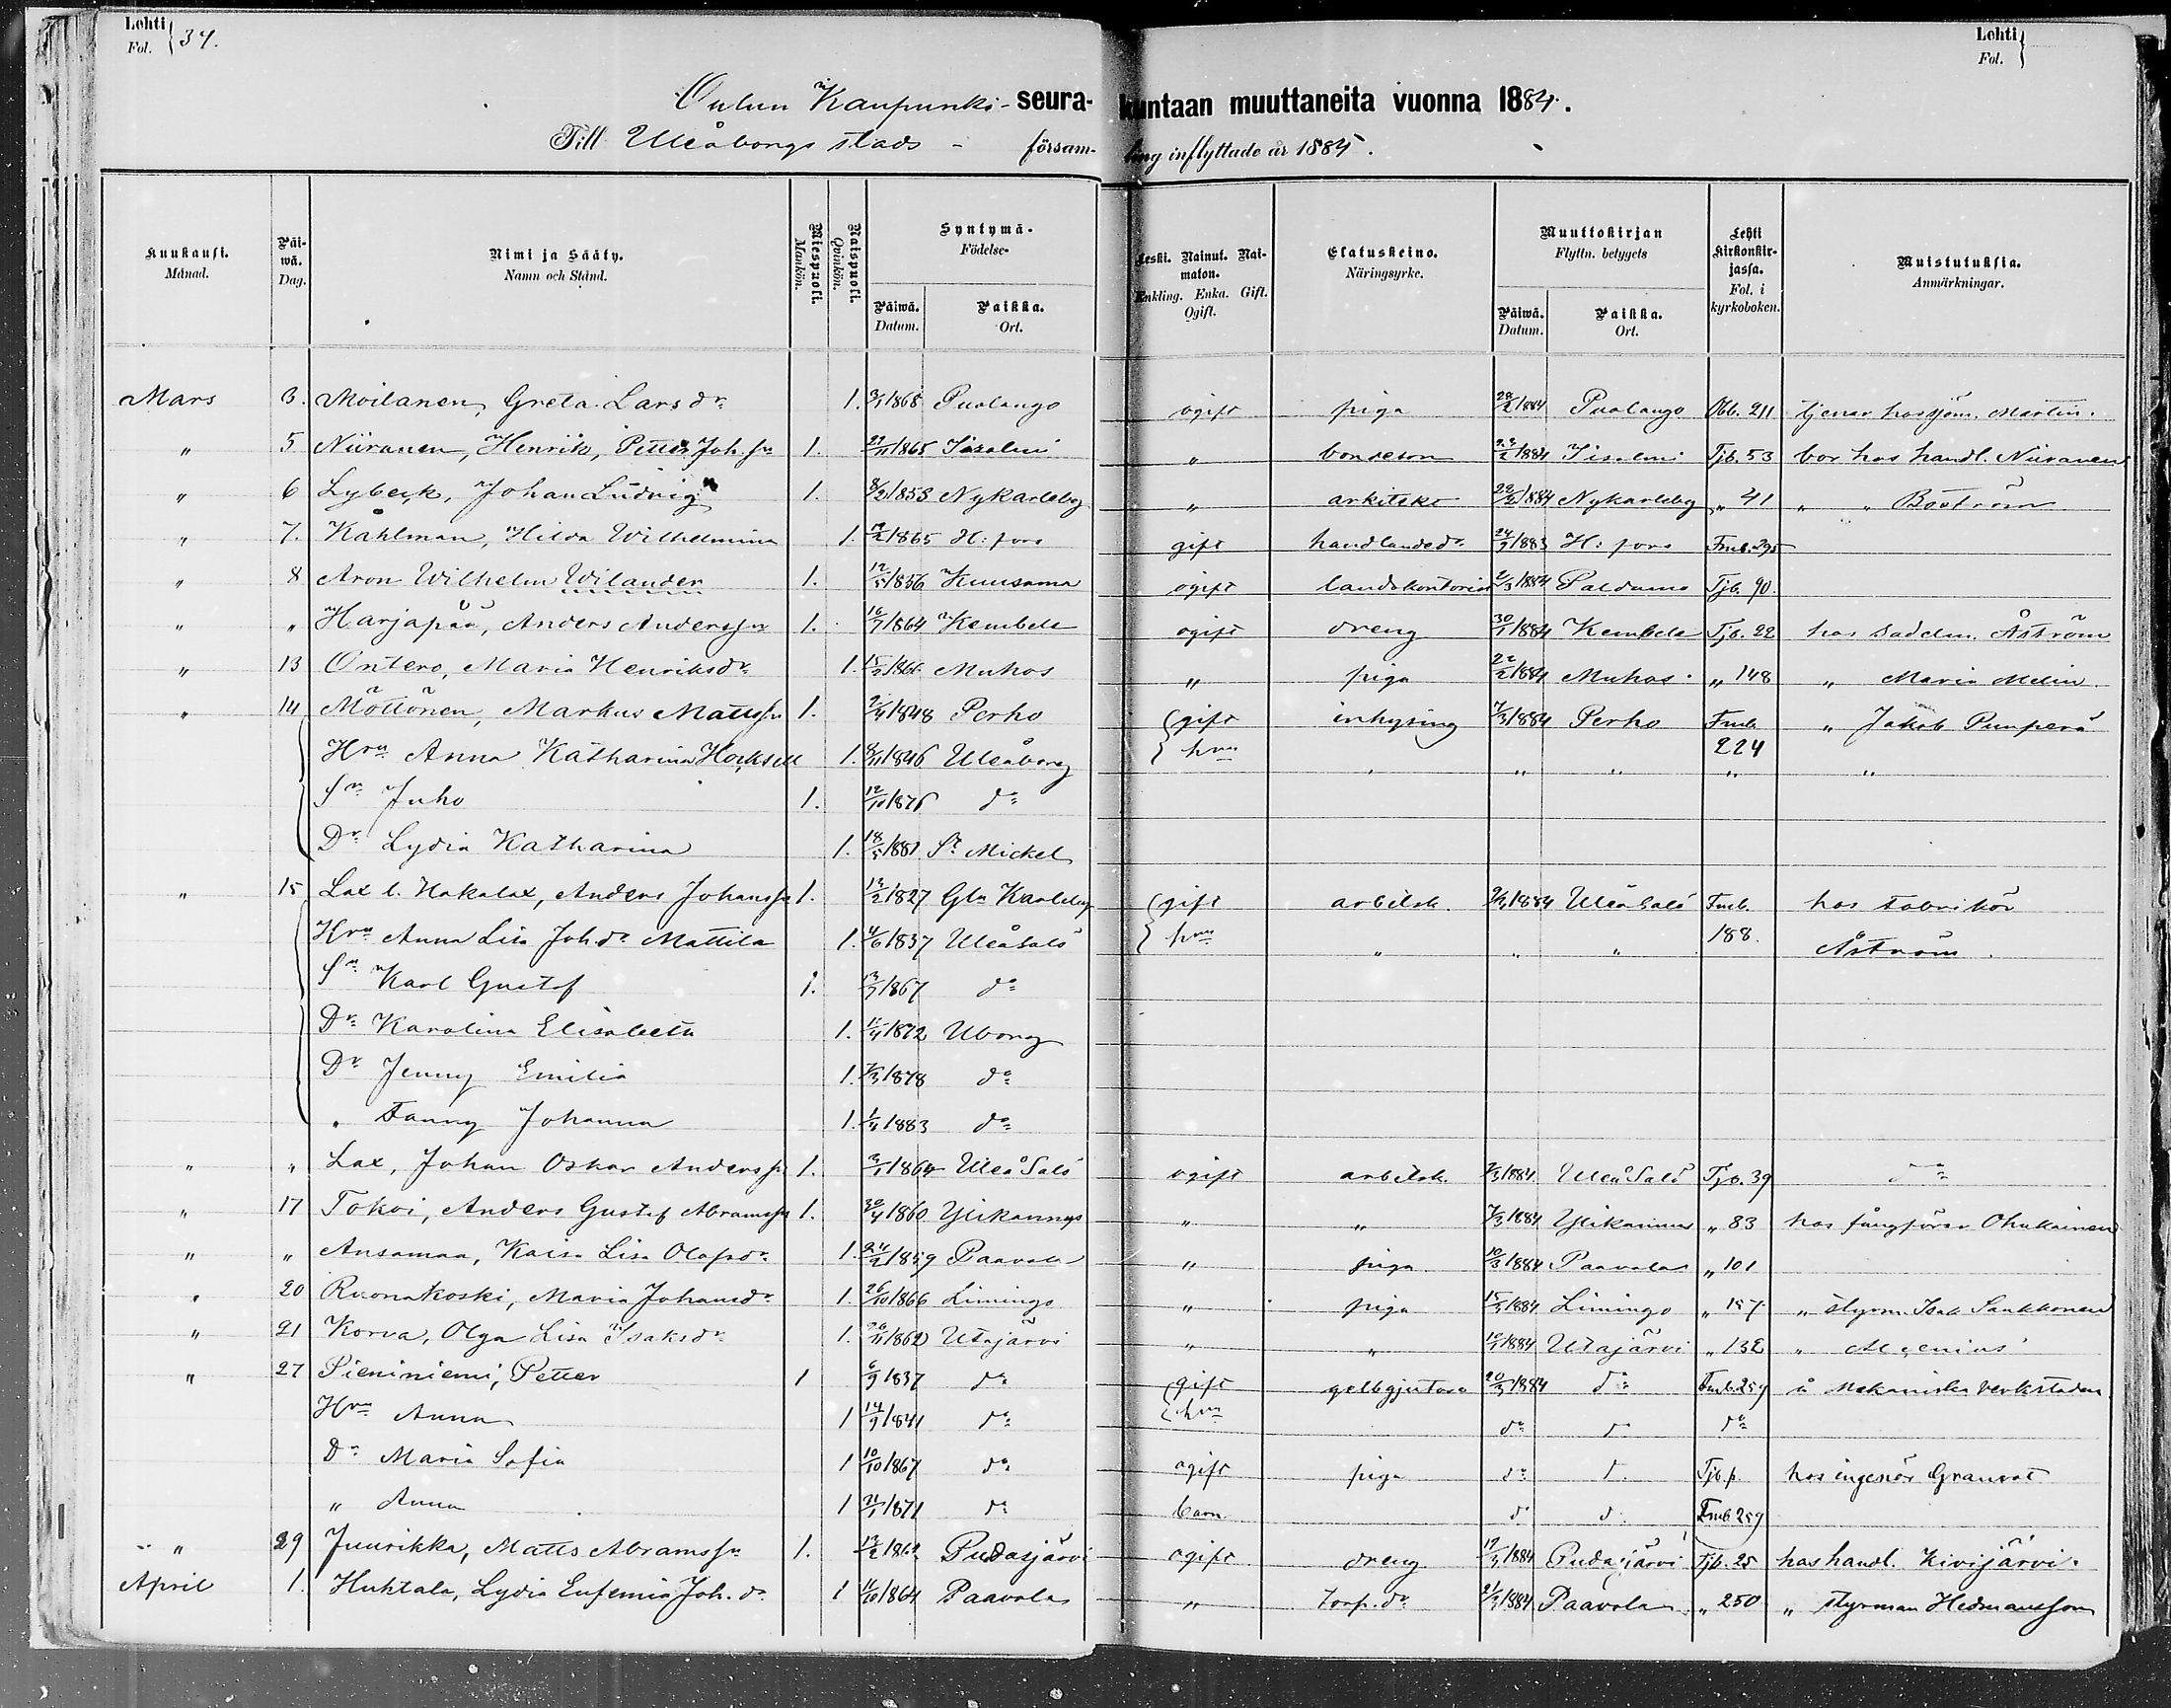 Lehti Fol. 34.
Lehti Fol.
Oulun Kaupunki- seura- kuntaan muuttaneita vuonna 1884.
Till Uleåborgs stads - försam- ling inflyttade år 1884.
Kuukausi. Månad. Päiwä. Dag. Nimi ja Sääty. Namn och Stånd. Miespuoli. Mankön. Naispuoli. Qvinkön. Syntymä- Födelse- Päiwä. Datum. Paikka. Ort. Leski. Nainut. Naimaton. Enkling. Enka. Gift. Ogift. Elatuskeino. Näringsyrke. Muuttokirjan Flyttn. betygets Päiwä. Datum. Paikka. Ort. Lehti kirkonkirjassa. Fol. i kyrkoboken. Muistutuksia. Anmärkningar.
Mars 3. Moilanen, Greta Larsdr. 1. 3/1 1868 Puolango ogift piga 1884 Puolango 211 tjenar hos Martin.
" 5 Niiranen, Henrik, Petter Joh. sn 1. 1865 Iisalmi " bondeson 1884 Iisalmi Tjb. 53 bor hos handl. Niiranen
" 6 Lybeck, Johan Ludvig 1. 8/2 1853 Nykarleby " arkitekt 1884 Nykarleby " 41 " " Boström
" 7. Kåhlman, Hilda Wilhelmina 1. 1865 H:fors gift handlandedr. 1883 H:fors Fmb. 295
" 8 Aron Wilhelm Wilander 1. 12/5 1856 Kuusamo ogift landskontorist 1884 Paldamo Tjb. 90.
" " Harjapää, Anders Anderssn 1. 16/7 1864 Kembele ogift dreng 30/1 1884 Kembele Tjb. 22 hos sadelm. Åström
" 13 Ontero, Maria Henriksdr. 1. 15/2 1866 Muhos " piga 22/2 1884 Muhos " 148 " Maria Melin.
" 14 Möttönen, Markus Mattssn 1. 2/4 1848 Perho gift inhysing 7/3 1884 Perho Fmb. " Jakob Pumperä
Hru Anna Katharina 1. 8/11 1846 Uleåborg hru " " " 224 "
Sn Juho 1. 12/10 1876 do
Dr Lydia Katharina 1. 18/5 1881 St Mickel
" 15 Lax l. Hakalax, Anders Johanssn 1. 12/2 1827 Gla Karleby gift arbetsk. 1884 Uleå Salo Fmb. hos Fabrikör
Hru Anna Lisa Joh.dr Mattila 1. 4/6 1837 Uleå Salo hru " " " 188. Åström.
Sn Karl Gustaf 1. 13/9 1867 do
Dr Karolina Elisabeth 1. 11/4 1872 Uborg
Dr Jenny Emilia 1. 1878 do
" Fanny Johanna 1. 1/4 1883 do
" " Lax, Johan Oskar Anderssn 1. 3/1 1864 Uleå Salo ogift arbetsk. 1884 Uleå Salo Tjb. 39 do
" 17 Tokoi, Anders Gustaf Abramssn 1. 30/4 1860 Ylikannus " " 7/3 1884 Ylikannus " 83 hos fångförar Ohukainen
" " Ansamaa, Kaisa Lisa Olofsdr. 1. 24/2 1859 Paavola " piga 10/3 1884 Paavola " 101
" 20 Ruonakoski, Maria Johansdr. 1. 26/10 1866 Limingo " piga 15/3 1884 Limingo " 187 " styrm. Isak Sankkonen
" 21 Korva, Olga Lisa Isaksdr. 1. 26/11 1862 Utajärvi " " 1884 Utajärvi " 132 "
" 27 Pieniniemi, Petter 1 6/9 1837 do gift gelbgjutare 20/3 1884 do Fmb. 259 å Mekaniska verkstaden
Hru Anna 1 14/9 1841 do hru do do do
Dr Maria Sofia 1 10/10 1867 do ogift piga do d. Tjb. p. hos ingeniör Granrot
" Anna 1 21/1 1871 do barn do d. Fmb 259
" 29 Juurikka, Matts Abramssn 1. 12/2 1862 Pudasjärvi ogift dreng 17/3 1884 Pudasjärvi Tjb. 25 hos handl. Kivijärvi.
April 1. Huhtala, Lydia Eufemia Joh. dr 1 11/10 1864 Paavola " Torp. dr 21/3 1884 Paavola " 250 " styrman Hedmansson